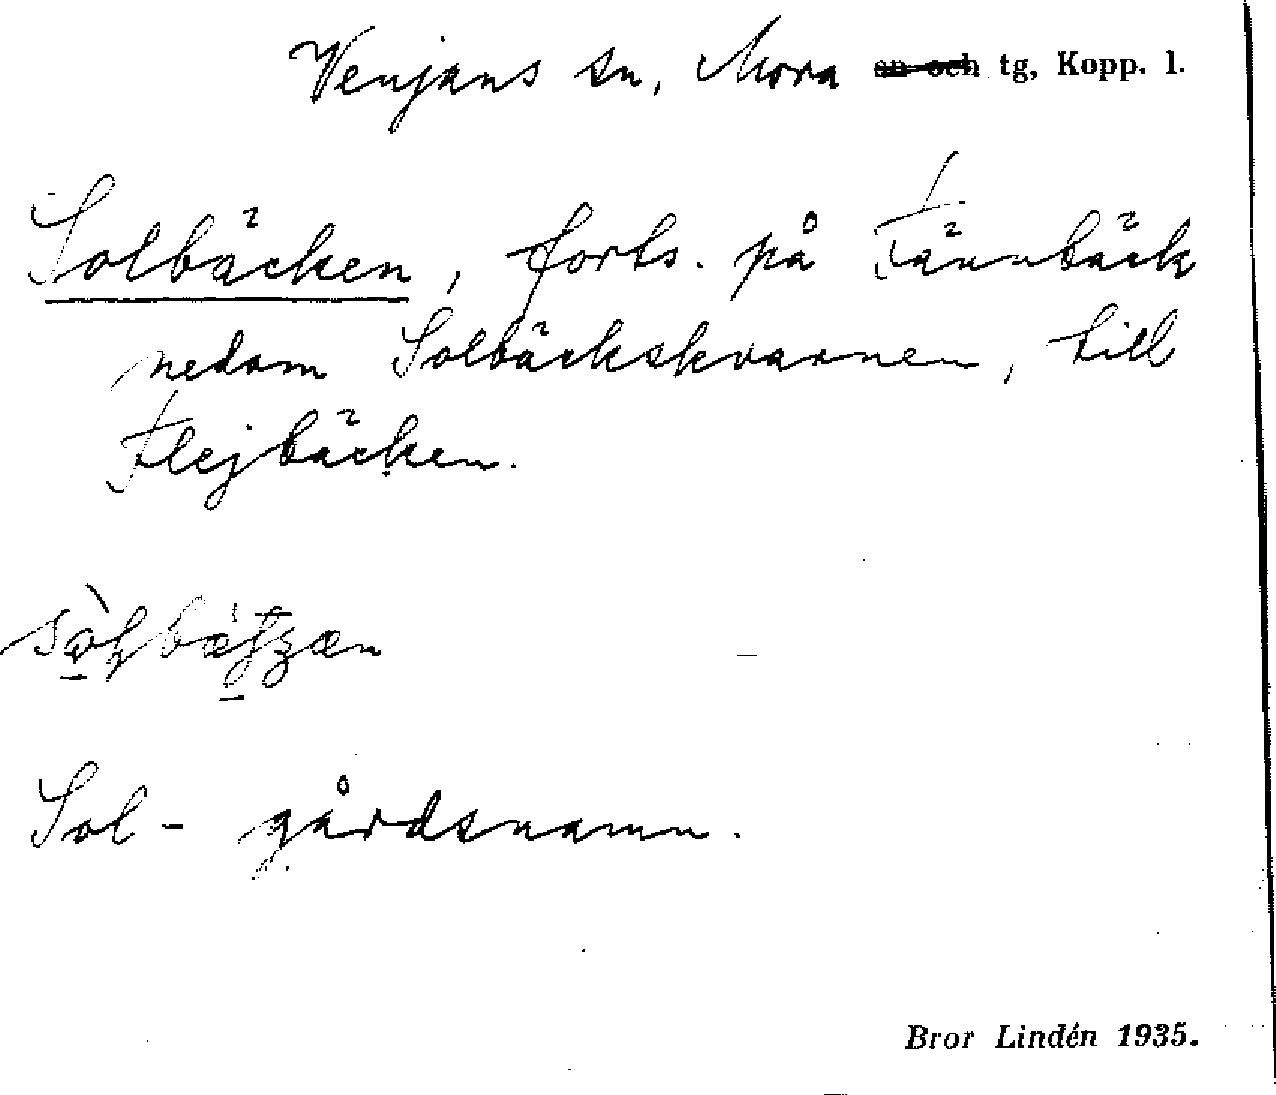 Venjans sn, Mora sn och tg, Kopp. l.
Solbäcken, forts. på Tännbäck
nedom Solbäckskvarnen, till
Flejbäcken.
Sol- gårdsnamn.
Bror Lindén 1935.